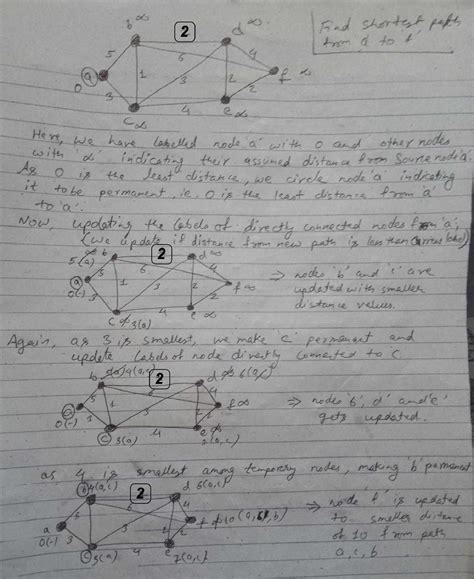 b ∞ 2 d ∞
Find shortest path
from a to f
5 6 4
a 1 3 2 f ∞
0 3 2
c ∞ 4 e ∞
Here, we have labelled node 'a' with 0 and other nodes
with '∞' indicating their assumed distance from source node 'a'.
As 0 is the least distance, we circle node 'a' indicating
it to be permanent, i.e. 0 is the least distance from 'a'
to 'a'.
Now, updating the labels of directly connected nodes from 'a',
(we update if distance from new path is less than current label)
5(a) b 2 d ∞
5 6 4
a 1 3 2 f ∞
0(-) 3 2
c 3(a) 4 e ∞
⇒ nodes 'b' and 'c' are
updated with smaller
distance values.
Again, as 3 is smallest, we make 'c' permanent and
update labels of node directly connected to c.
b 4(a,c) 2 d 6(a,c)
5 6 4
a 1 3 2 f ∞
0(-) 3 2
c 3(a) 4 e
7(a,c)
⇒ nodes b', d' and 'e'
gets updated.
as 4 is smallest among temporary nodes, making 'b' permanent
b 4(a,c) 2 d 6(a,c)
5 6 4
a 1 3 2 f 10(a,c,b)
0(-) 3 2
c 3(a) 4 e 7(a,c)
⇒ node 'f' is updated
to smaller distance
of 10 from path
a,c,b